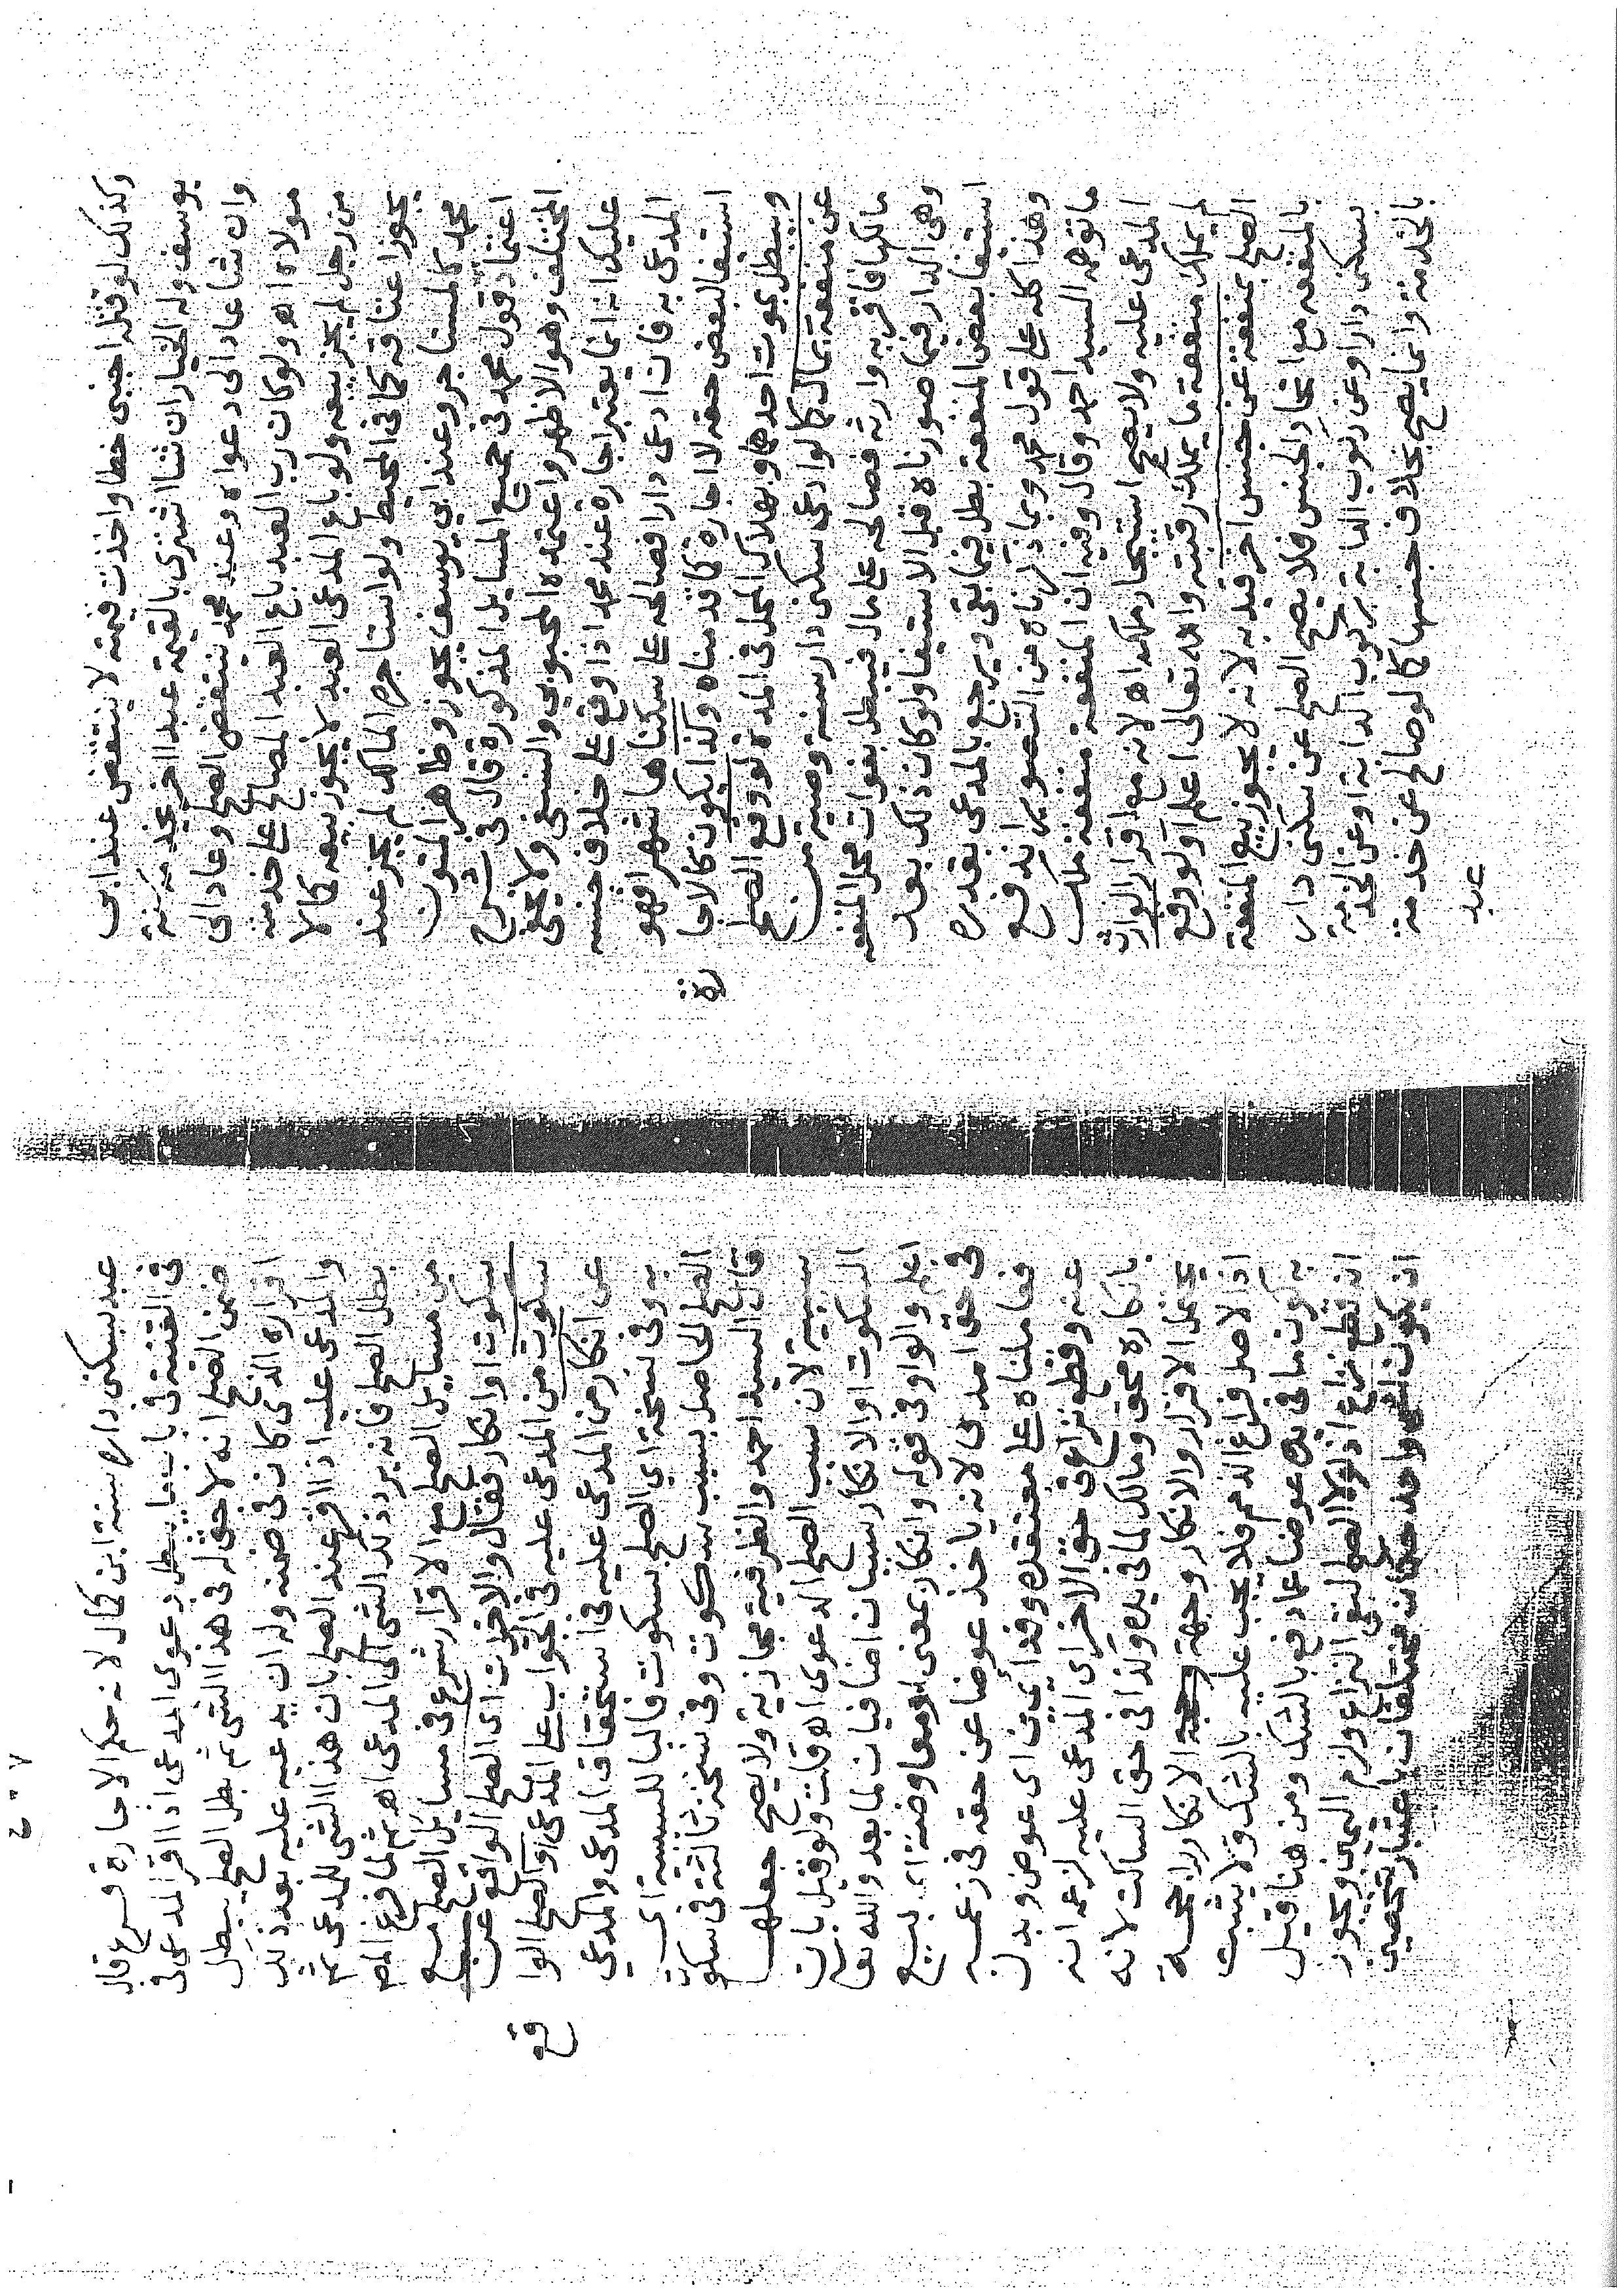 وكذلك لو قتله اجنبى خطا واخذت قيمته لا ينتقض عند ابى
يوسف وله الخيار ان شا اشترى بالقيمة عبدا اخر يخدمه سنة
وان شا عاد الى دعواه وعند محمد ينتقض الصلح وعاد الى
مولاه اهـ ولو كان رب العبد باع العبد المصالح على خدمته
من رجل لم يجز بيعه ولو باع المدعى العبد لا يجوز بيعه كما لا
يجوز اعتاقه كما فى المحيط ولو استاجره المالك لم يجز عند
محمد كالمستاجر وعند ابي يوسف يجوز وظاهر المتون
اعتماد قول محمد فى جميع المسايل المذكورة قال فى شرح
المختلف وهو الاظهر واعتمده المحبوبي والنسفى ولا يخفى
عليك انه انما يعتبر اجارة عند محمد اذا وقع على خلاف جنسه
المدعى به فان ادعى دارا فصالحه على سكناها شهرا فهو
استيفا لبعض حقه لا اجارة كما قدمناه وكذا يكون كالاجا
رة
ويبطل بموت احدهما وبهلاك المحل فى المدة لو وقع الصلح
عن منفعة بمال كما لو ادعى سكنى دار سنة وصية من
مالكها فاقر به وارثه فصالحه على مال فيبطل بفوات محل المنفعه
وهى الدار فيما صورناه قبل الاستيفا ولو كان ذلك بعد
استيفا بعض المنفعة بطل فيما بقى ويرجع بالمدعى بقدره
وهذا كله على قول محمد وبما ذكرناه من التصوير اندفع
ما توهمه السيد احمد وقال وفيه ان المنفعة منفعة ملك
المدعى عليه ولا يصح استيجار ملكه اهـ لانه مع اقرار الوارث
لم يملك منفعته ما يملك رقبته والله تعالى اعلم ولو وقع
الصلح بمنفعة عن جنس اخر قيد به لانه لا يجوز بيع المنفعة
بالمنفعه مع اتحاد الجنس فلا يصح الصلح عن سكنى دار
بسكنى دار او عن ركوب الدابة بركوب الدابة او عن الخدمة
بالخدمة وانما يصح بخلاف جنسها كما لو صالح عن خدمة
عبد
عبد بسكنى داره سنة ابن كمال لانه حكم الاجارة فرع قال
فى القنية فى باب ما يبطل دعوى المدعى اذا اقر المدعى فى
ضمن الصلح انه لا حق له فى هذا الشى ثم بطل الصلح يبطل
اقراره الذى كان فى ضمنه وله ان يدعيه عليه بعد ذلك
والمدعى عليه اذا اقر عند الصلح بان هذا الشى للمدعى ثم
بطل الصلح فانه يرد ذلك الشى الى المدعى اهـ ثم لما فرغ المص
من مسايل الصلح مع الاقرار شرع فى مسايل الصلح مع
سكوت او انكار فقال والاخران اى الصلح الواقع عن
سكوت من المدعى عليه فى الجواب على المدعى والصلح الوا
قع
عن انكار من المدعى عليه فى استحقاق المدعى والمدعى
به وفى نسخة اي الصلح بسكوت فالبا للسببية اى
الصلح الحاصل بسبب سكوت وفى نسخة ثالثة فى سكوت
قال السيد احمد والظرفية مجازية ولا يصح جعلها
سببية لان سبب الصلح الدعوى اهـ قلت ولو قيل بان
السكوت او الانكار سببان اضافيان لما بعد والله تع
اعلم والواو فى قوله وانكار بمعنى او معاوضة اى بيع
فى حق المدعى لانه ياخذ عوضا عن حقه فى زعمه
فعاملناه على معتقده وفدا يمين اى عوض وبدل
عنه وقطع نزاع فى حق الاخر اى المدعى عليه لزعمه انه
بانكاره محق ومالك لما فى يده وكذا فى حق الساكت لانه
يحتمل الاقرار والانكار وجهة الانكار راجحة
اذا الاصل فراغ الذمم فلا يجب عليه بالشك ولا يثبت
به كون ما فى يده عوضا عما دفع بالشك ومن هنا قيل
انه قطع نزاع اذ لولا الصلح لبقى النزاع ولزم اليمين ويجوز
ان يكون لشى واحد حكمان مختلفان باعتبار شخصين